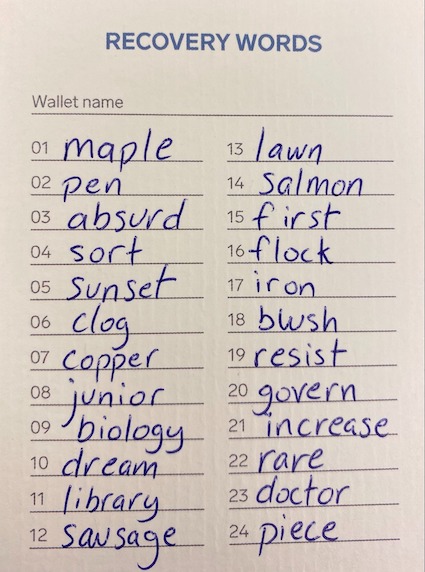 RECOVERY WORDS
Wallet name
01 maple
02 pen
03 absurd
04 sort
05 sunset
06 clog
07 copper
08 junior
09 biology
10 dream
11 library
12 sausage
13 lawn
14 salmon
15 first
16 flock
17 iron
18 blush
19 resist
20 govern
21 increase
22 rare
23 doctor
24 piece